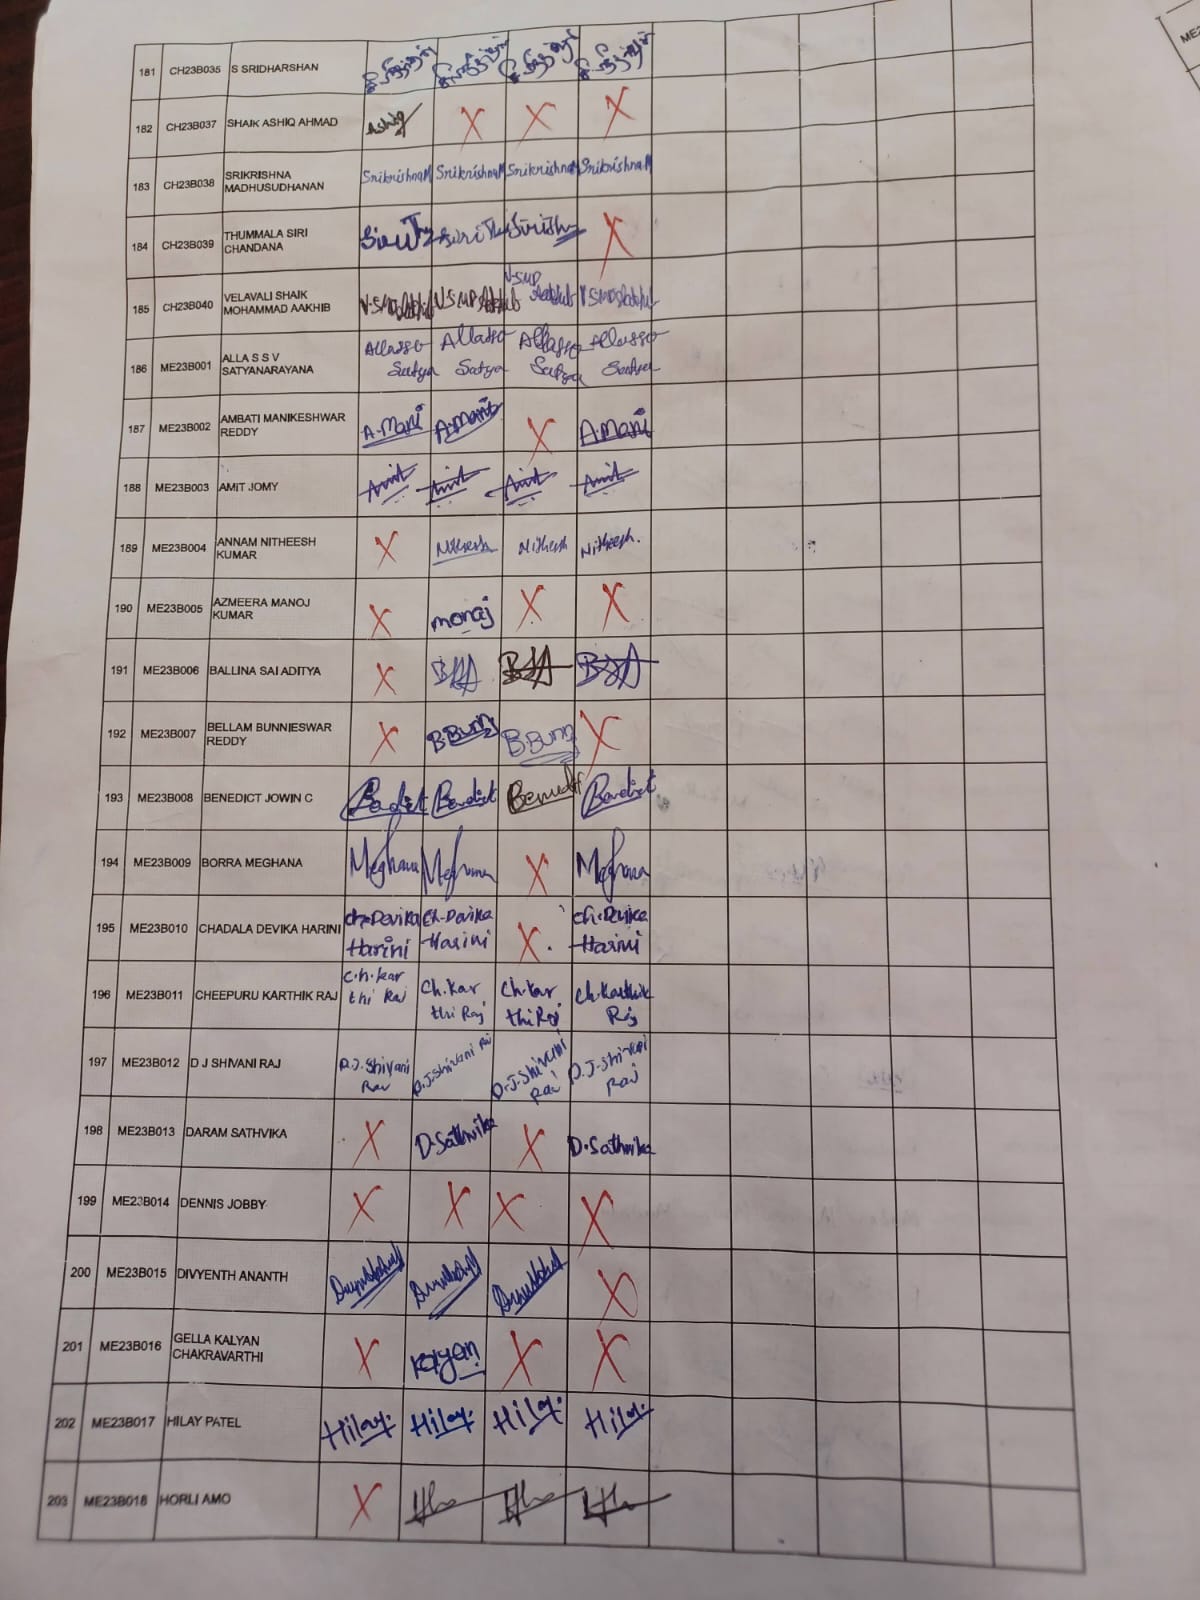 181 CH23B035 S SRIDHARSHAN
182 CH23B037 SHAIK ASHIQ AHMAD Ashiq X X X
183 CH23B038 SRIKRISHNA MADHUSUDHANAN SrikrishnaM SrikrishnaM SrikrishnaM SrikrishnaM
184 CH23B039 THUMMALA SIRI CHANDANA X
185 CH23B040 VELAVALI SHAIK MOHAMMAD AAKHIB
186 ME23B001 ALLA S S V SATYANARAYANA Satya Satya Satya Satya
187 ME23B002 AMBATI MANIKESHWAR REDDY A.Mani A.Mani X A.Mani
188 ME23B003 AMIT JOMY Amit Amit Amit Amit
189 ME23B004 ANNAM NITHEESH KUMAR X Nitheesh Nitheesh Nitheesh.
190 ME23B005 AZMEERA MANOJ KUMAR X manoj X X
191 ME23B006 BALLINA SAI ADITYA X BSA BSA BSA
192 ME23B007 BELLAM BUNNIESWAR REDDY X B.Bunny B.Bunny X
193 ME23B008 BENEDICT JOWIN C Benedict Benedict Benedict Benedict
194 ME23B009 BORRA MEGHANA Meghana Meghana X Meghana
195 ME23B010 CHADALA DEVIKA HARINI Ch.Devika Harini Ch.Devika Harini X Ch.Devika Harini
196 ME23B011 CHEEPURU KARTHIK RAJ C.h.kar thi Raj Ch.kar thi Raj Ch.kar thi Raj Ch.Karthik Raj
197 ME23B012 D J SHIVANI RAJ D.J.Shivani Raj D.J.Shivani Raj D.J.Shivani Raj D.J.Shivani Raj
198 ME23B013 DARAM SATHVIKA X D.Sathvika X D.Sathvika
199 ME23B014 DENNIS JOBBY X X X X
200 ME23B015 DIVYENTH ANANTH X
201 ME23B016 GELLA KALYAN CHAKRAVARTHI X Kalyan X X
202 ME23B017 HILAY PATEL Hilay. Hilay. Hilay. Hilay.
203 ME23B018 HORLI AMO X